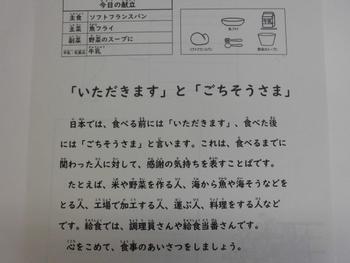 今日の献立
主食 ソフトフランスパン
主菜 魚フライ
副菜 野菜のスープに
牛乳・乳製品 牛乳
魚フライ
牛乳
ソフトフランスパン
野菜のスープに
「いただきます」と「ごちそうさま」
日本では、食べる前には「いただきます」、食べた後
には「ごちそうさま」と言います。これは、食べるまでに
関わった人に対して、感謝の気持ちを表すことばです。
たとえば、米や野菜を作る人、海から魚や海そうなどを
とる人、工場で加工する人、運ぶ人、料理をする人など
です。給食では、調理員さんや給食当番さんです。
心をこめて、食事のあいさつをしましょう。